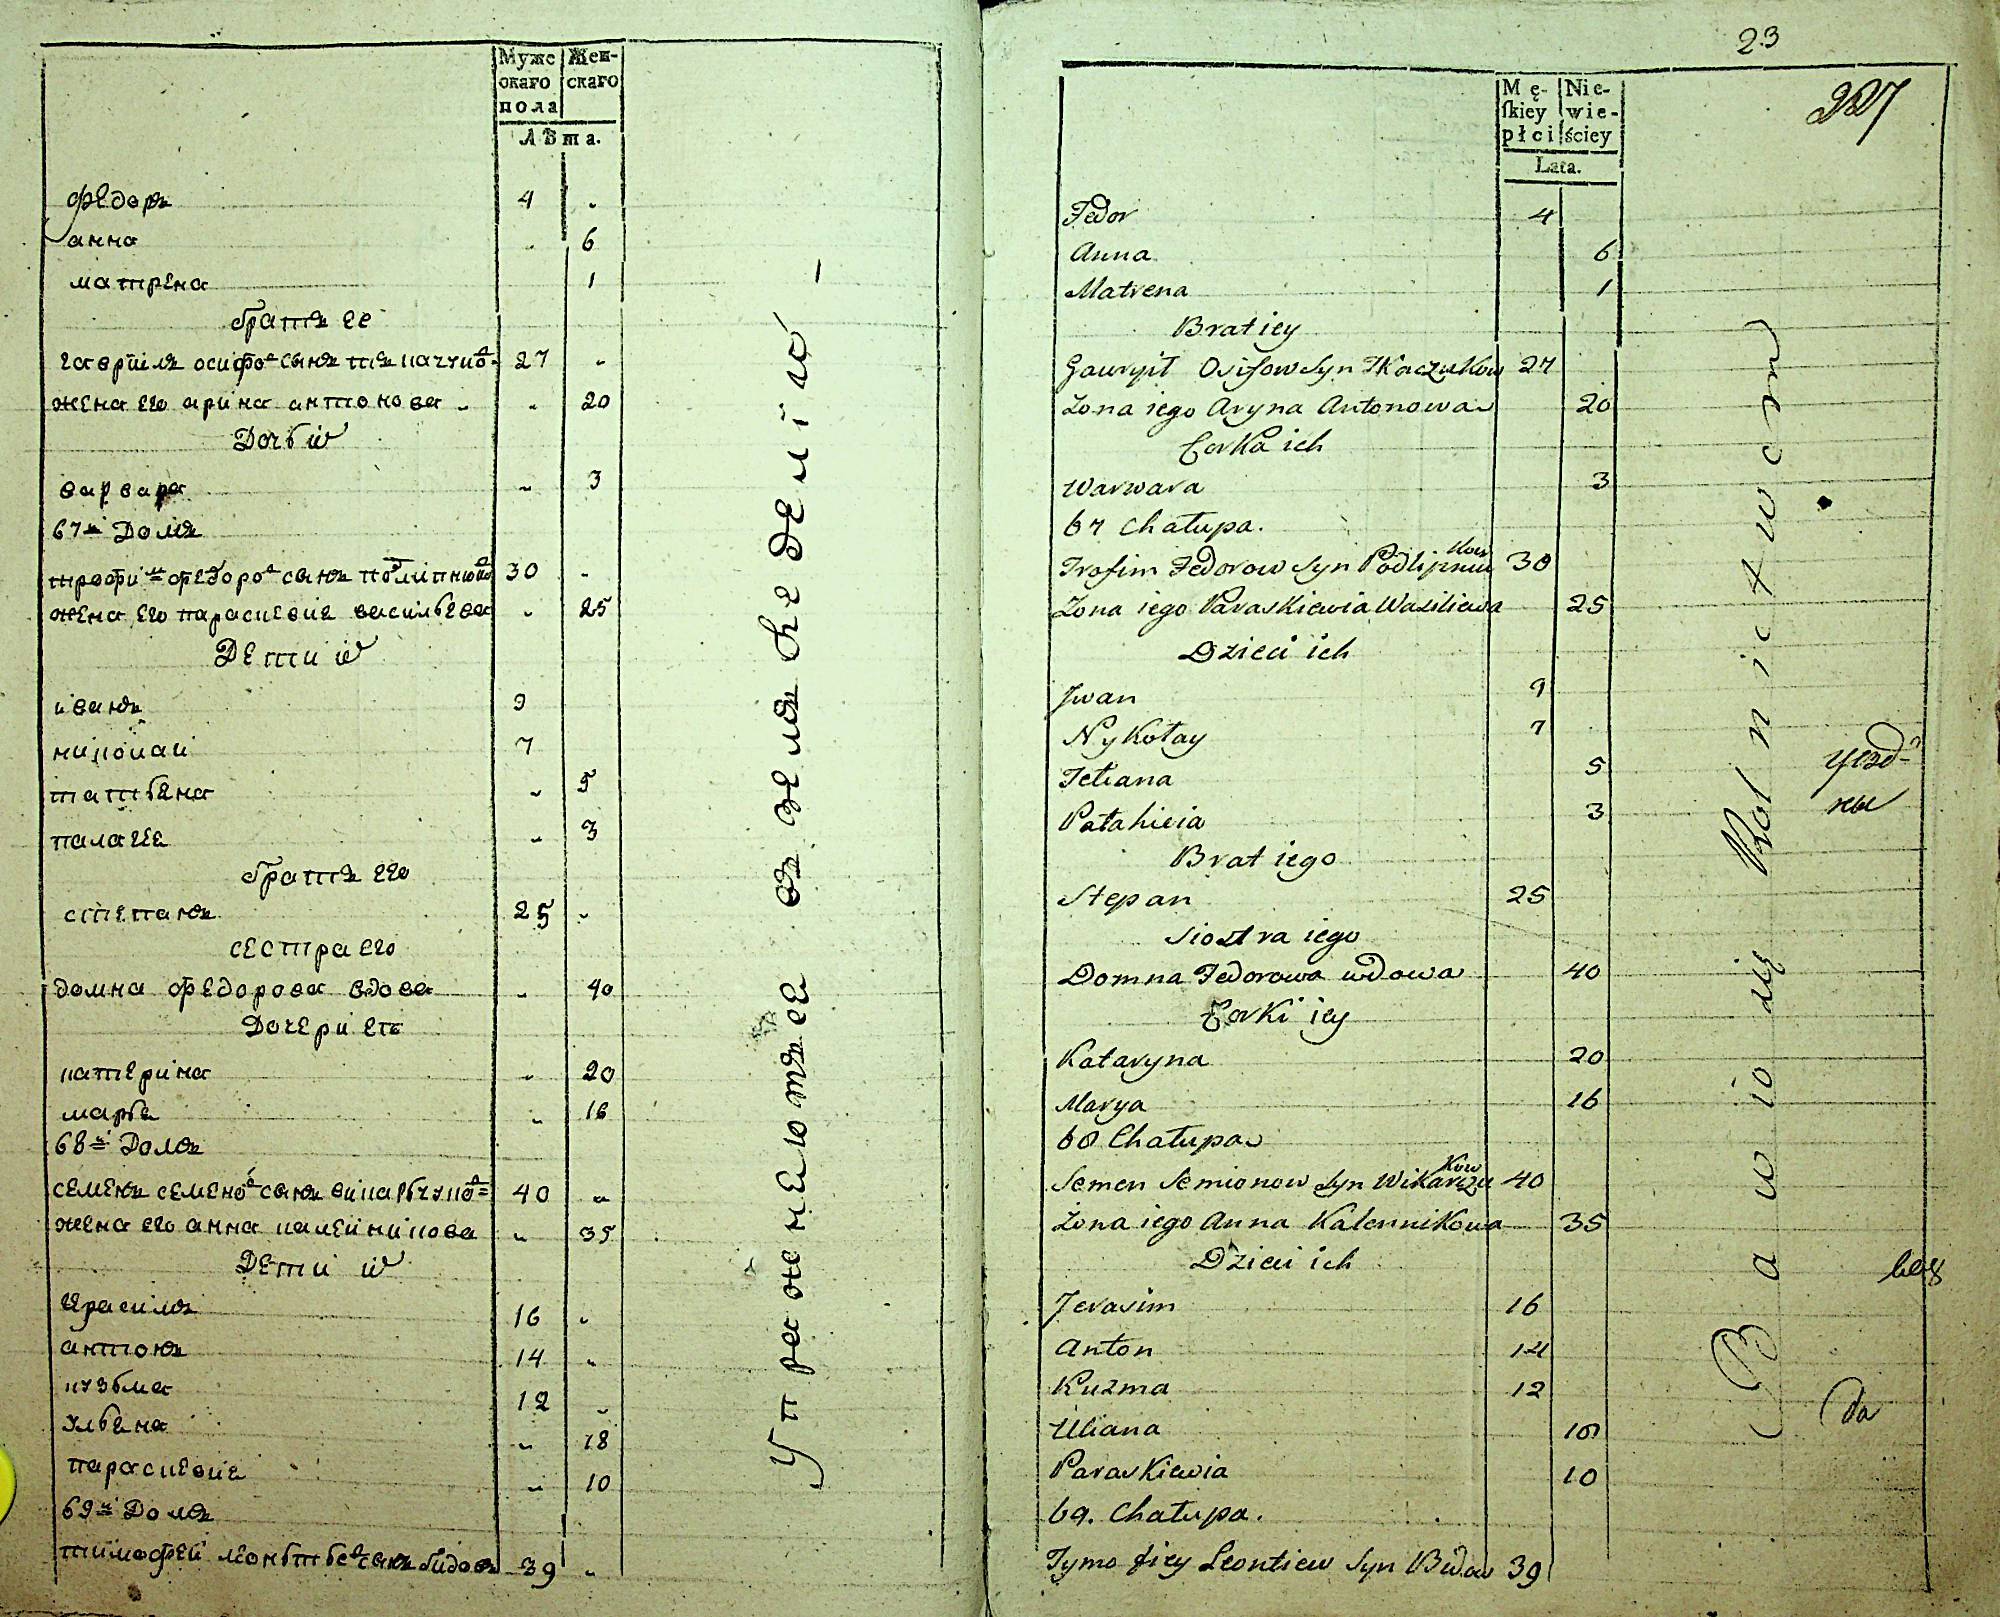 Муже Жен-
скаго скаго
пола
лѣта.
федоръ 4 „
анна „ 6
матрена 1
братъ ее
гаврiилъ осифовъ сынъ ткачуковъ 27 „
жена его арина антонова „ „ 20
Дочь их
варвара „ 3
67й Домъ
трофим федоров сынъ подлипнюковъ 30 „
жена его параскевие васильева „ 25
Дети их
иванъ 9
николай 7
татьена „ 5
палагие „ 3
братъ его
степанъ 25 „
сестра его
домна федорова вдова „ 40
Дочери еѣ
катерина „ 20
марье „ 16
68й Домъ
семенъ семенов сынъ викарчуков 40 „
жена его анна калейникова „ 35
Дети их
ерасимъ 16 „
антонъ 14 „
кузьма 12 „
ульена „ 18
параскевие „ 10
69й Домъ
тимофей леонтьев сынъ бидов 39 „
Упражнеютсе въ земледелiю
23
227
Mę- Nie-
skiey wie-
płci ściey
Lata.
Fedor 4
Anna 6
Matrena 1
Brat iey
Gawryił Osifow Syn Tkaczukow 27
Żona iego Aryna Antonowa 20
Corka ich
Warwara 3
67 Chałupa.
Trofim Fedorow Syn Podlipniukow 30
Żona iego Paraskiewia Wasiliewa 25
Dzieci ich
Jwan 9
Nykołay 7
Tetiana 5
Pałahieia 3
Brat iego
Stepan 25
Siostra iego
Domna Fedorowa wdowa 40
Corki iey
Kataryna 20
Marya 16
68 Chałupa
Semen Semionow Syn Wikarczukow 40
Żona iego Anna Kalennikowa 35
Dzieci ich
Jerasim 16
Anton 14
Kuzma 12
Uliana 18
Paraskiewia 10
69. Chałupa.
Tymofiey Leontiew Syn Bidow 39
Bawio się Rolnictwom